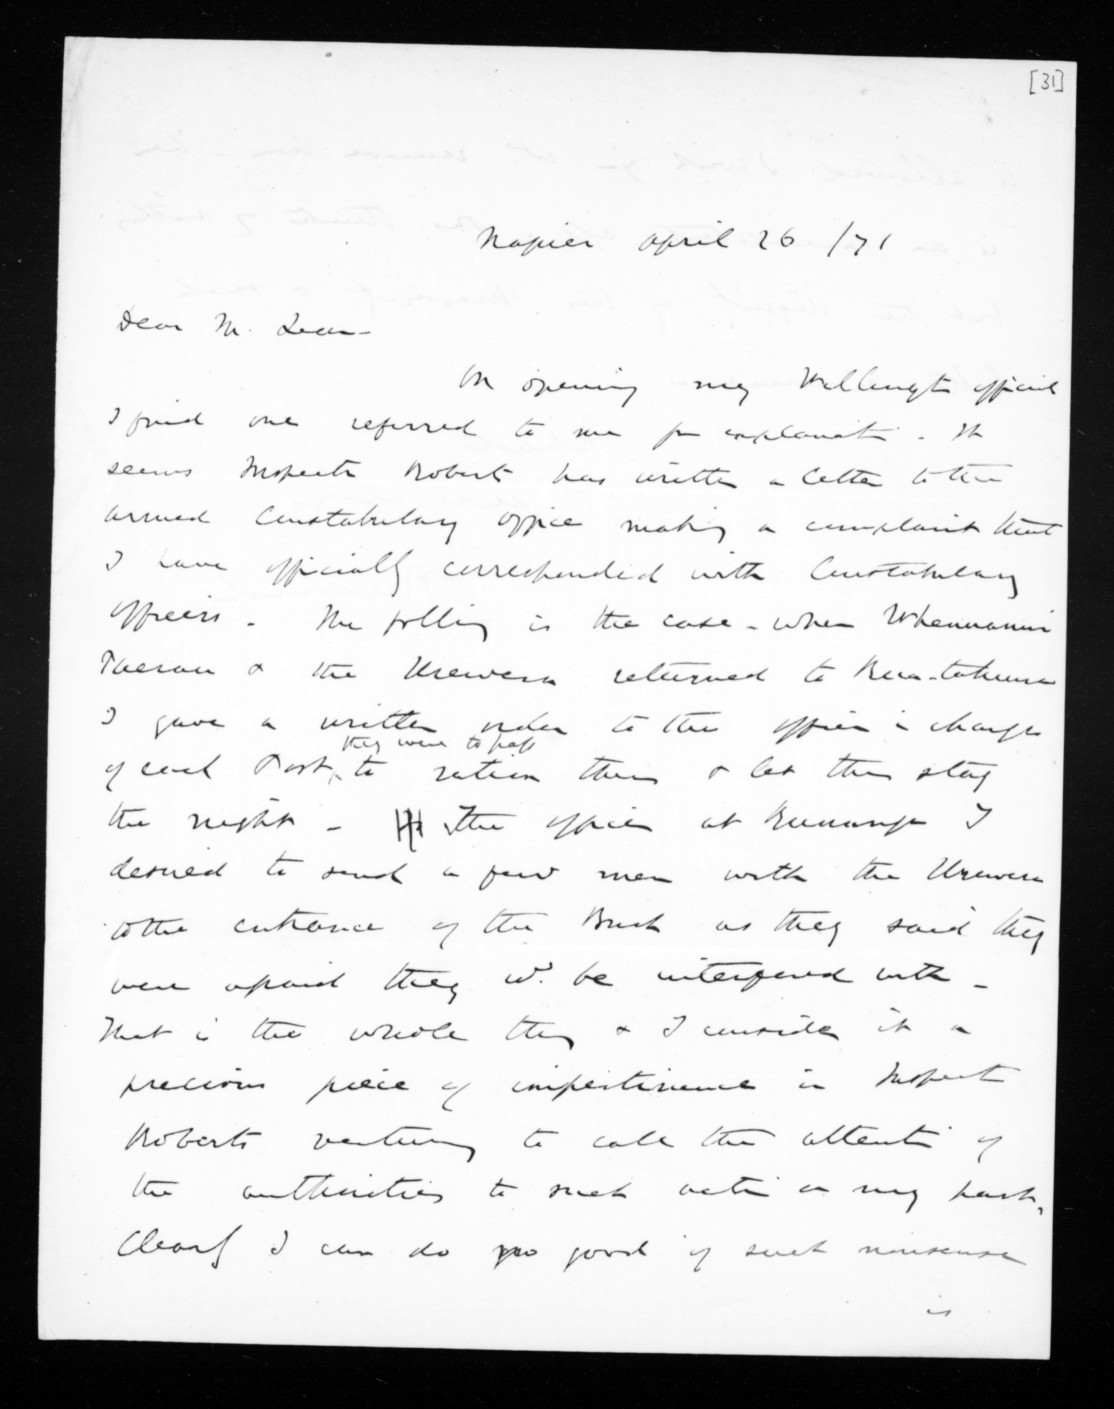 [31]
Napier April 26 /71
Dear Mr. Lean -
On opening my Wellingt official
I find one referred to me for explanati. It
seems Inspectr Robert has written a letter to the
armed Constabulary office making a complaint that
I have officially corresponded with Constabulary
officers. The folling is the case - when Whenuanui
Paerau & the Urewera returned to Rua-tahuna
I gave a written order to the officer in charge
they were to pass
of each Post, to ration them & let them stay
the night - The officer at Runanga I
desired to send a few men with the Urewera
to the entrance of the Bush as they said they
were afraid they wd. be interfered with -
That is the whole thing & I consider it a
precious piece of impertinence in Inspect
Roberts venturing to call the attenti of
the authorities to such acti on my part,
Clearly I can do no good if such nonsense
is